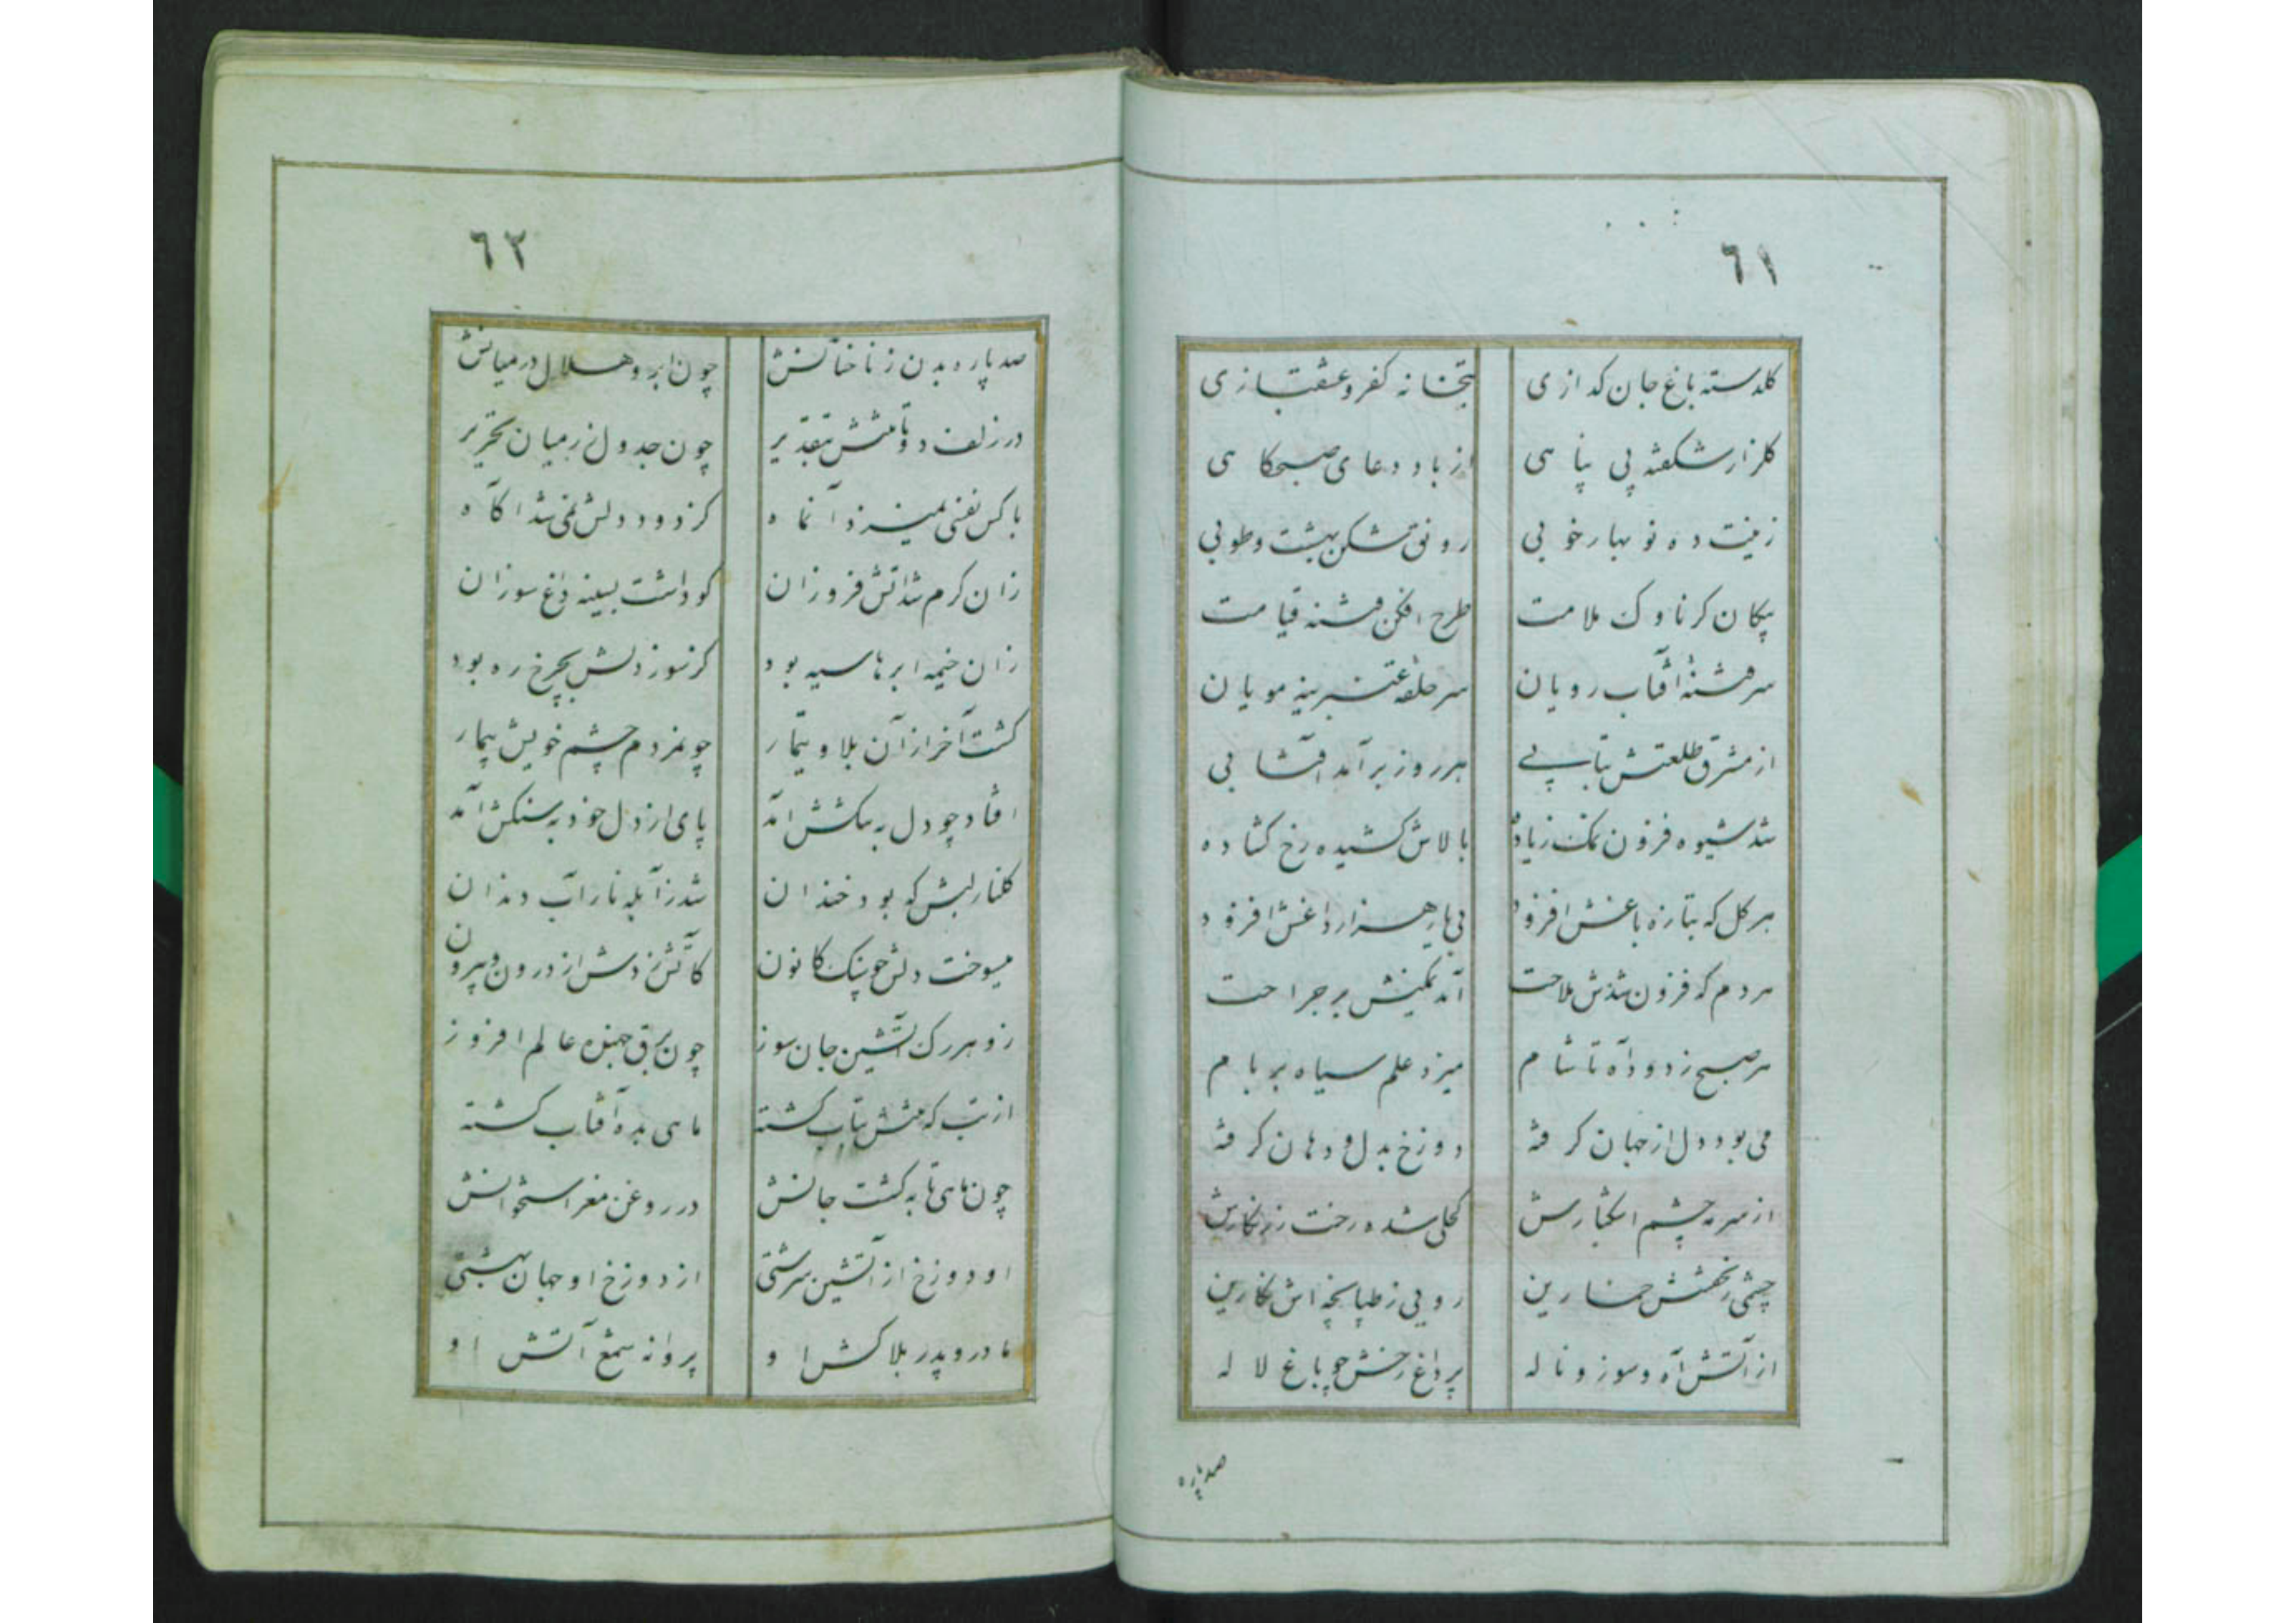 ٦١
كلدسته باغ جان كدازی بتخانه كفر و عشقبازی
كلزار شكفته بی پناهی از باد دعای صبحكاهی
زینت ده نوبهار خوبی رونق شكن بهشت و طوبی
پیكان كر ناوك ملامت طرح افكن فتنه قیامت
سر فتنهٔ آفتاب رویان سر حلقه عنبرینه مویان
از مشرق طلعتش بتابی هر روز بر آمد آفتابی
شد شیوه فزون نمك زیاده بالاش كشیده رخ كشاده
هر كل كه بتازه باغش افزود بی یار هزار داغش افزود
هر دم كه فزون شدش ملاحت آمد نمكیش بر جراحت
هر صبح ز دود آه تا شام میزد علم سیاه بر بام
می بود دل از جهان كرفته دوزخ بدل و دهان كرفته
از سرمه چشم اشكبارش كحلی شده رخت زرنكارش
چشمی ز غمش خمارین رویی ز طپانچه اش نكارین
از آتش آه و سوز و ناله پر داغ رخش چو باغ لاله
صدپاره
٦٢
صد پاره بدن ز ناخنانش چون ابر و هلال در میانش
در زلف دوتا تنش بتقدیر چون جدول زر میان تحریر
با كس نفسی نمیزد آنماه كز دود دلش نمی شد آكاه
زان كرم شد آتش فروزان كو داشت بسینه داغ سوزان
زان خیمه ابرها سیه بود كز سوز دلش بچرخ ره بود
كشت آخر از آن بلا و تیمار چو مردم چشم خویش بیمار
افتاد چو دل به تنكش آمد پای از دل خود به سنكش آمد
كلنار لبش كه بود خندان شد ز آبله نار آب دندان
میسوخت دلش چو پنك كانون كآتش زدش از درون و بیرون
زو هر رك آتشین جان سوز چون برق جهنده عالم افروز
از تب كه تنش بتاب كشته ماهی بده آفتاب كشته
چون ماهی تابه كشت جانش در روغن مغز استخوانش
او دوزخ از آتشین سرشتی از دوزخ او جهان بهشتی
مادر و پدر بلاكش او پروانه شمع آتش او